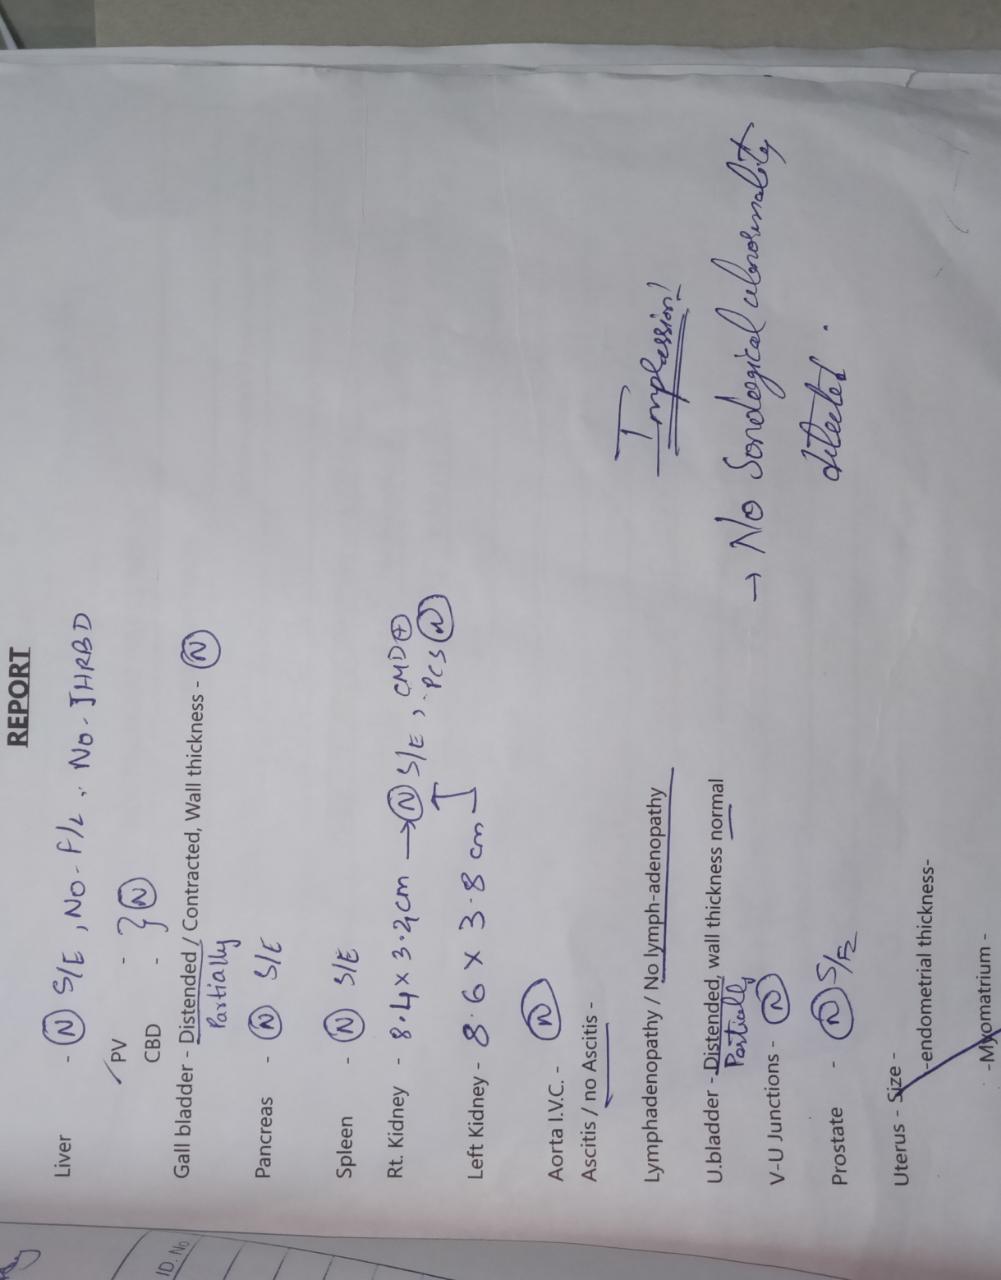 REPORT
Liver - (N) S/E, No - F/L, No - IHRBD
PV -
CBD - } (N)
Gall bladder - Distended / Contracted, Wall thickness - (N)
Partially
Pancreas - (N) S/E
Spleen - (N) S/E
Rt. Kidney - 8.4 x 3.2 cm → (N) S/E, CMD (+)
PCS (N)
Left Kidney - 8.6 x 3.8 cm
Aorta I.V.C. - (N)
Ascitis / no Ascitis -
Lymphadenopathy / No lymph-adenopathy
U.bladder - Distended, wall thickness normal
Partially
V-U Junctions - (N)
Prostate - (N) S/E
Uterus - Size -
-endometrial thickness-
-Myomatrium -
Impression!
→ No Sonological abnormality
detected.
ID. No